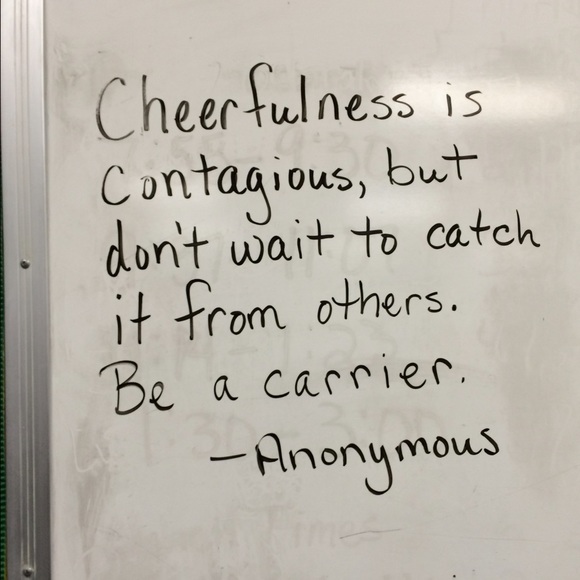 Cheerfulness is
contagious, but
don't wait to catch
it from others.
Be a carrier.
-Anonymous